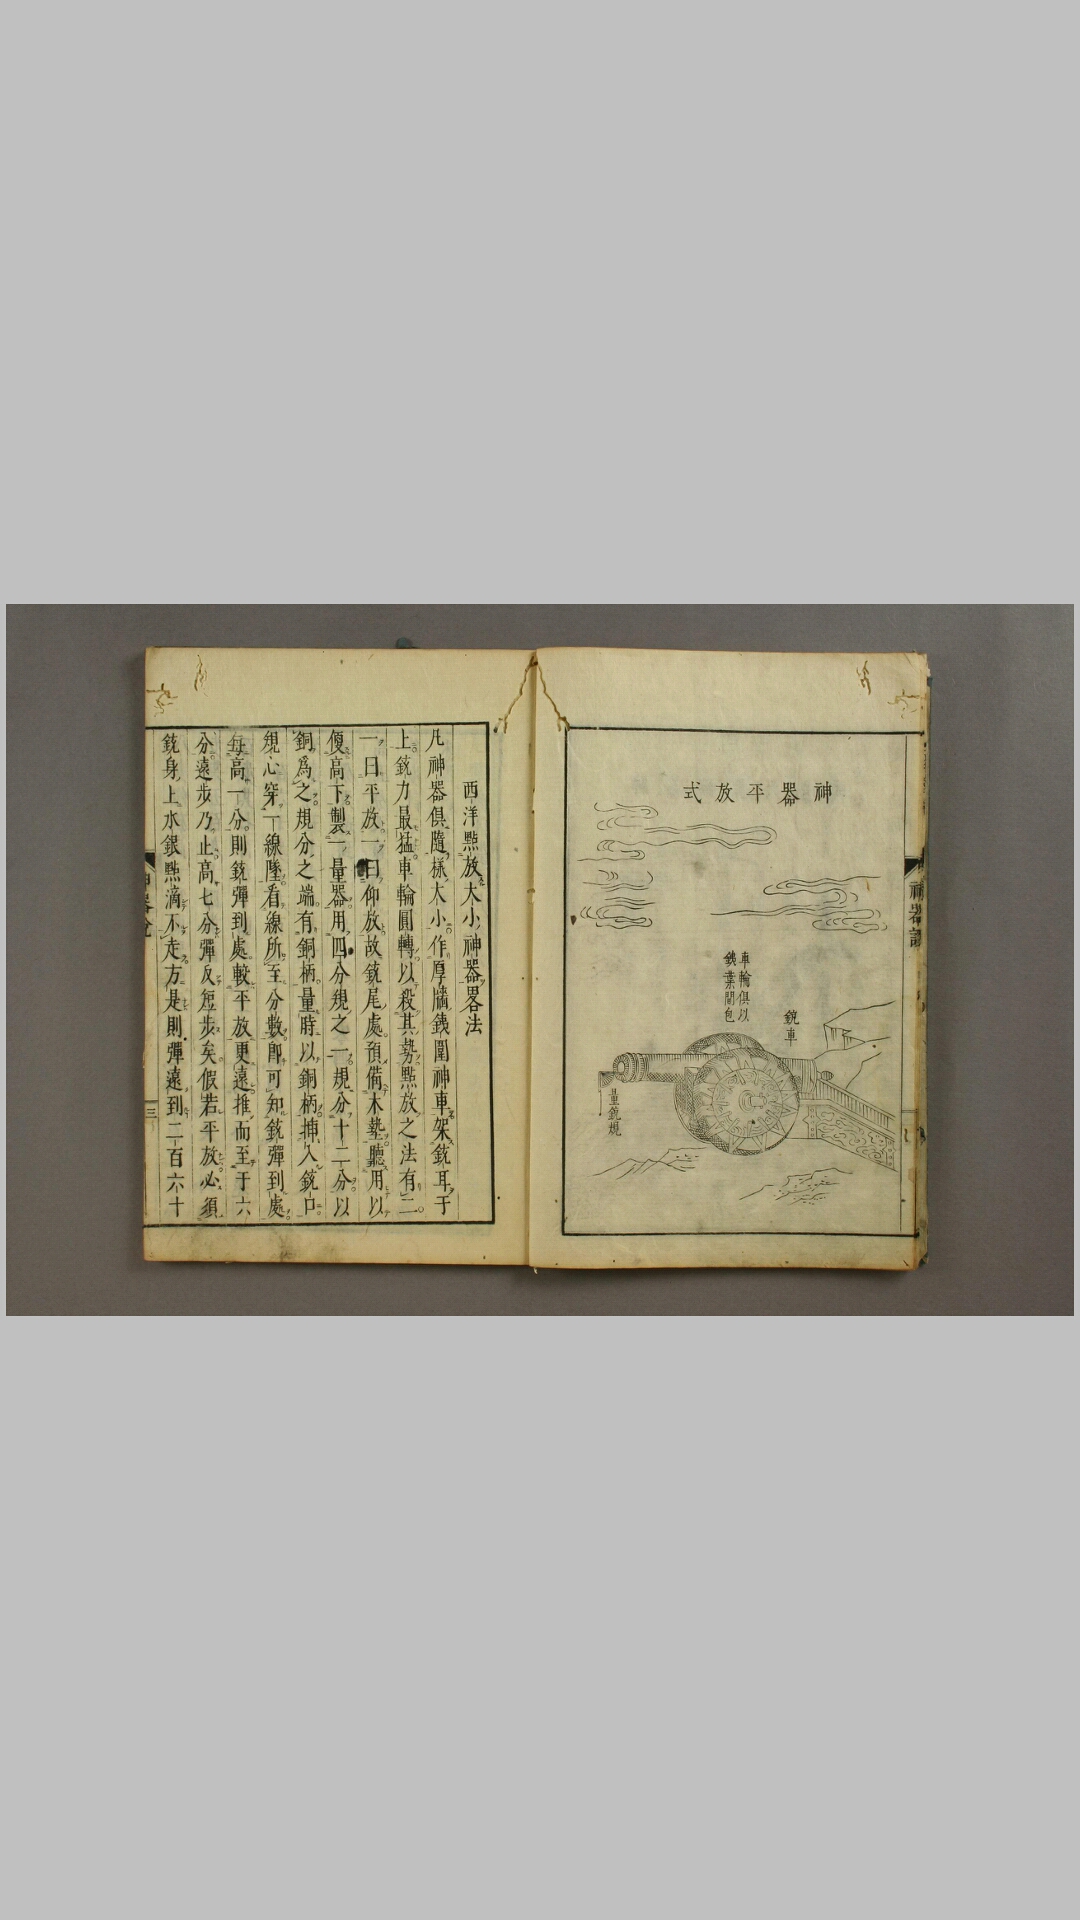 神器平放式
車輪俱以
鐵葉間包
銃車
量銃規
神器譜
西洋點放大小神器畧法
凡神器俱隨樣大小作厚牆鐵圍神車架銃耳于
上銃力最猛車輪圓轉以殺其勢點放之法有二
一曰平放一曰仰放故銃尾處預備木墊聽用以
偃高下製一量器用四分規之一規分十二分以
銅為之規分之端有銅柄量時以銅柄揷入銃口
規心穿一線墜看線所至分數卽可知銃彈到處
每高一分則銃彈到處較平放更遠推而至于六
分遠步乃止高七分彈反短步矣假若平放必須
銃身上水銀點滴不走方是則彈遠到二百六十
三